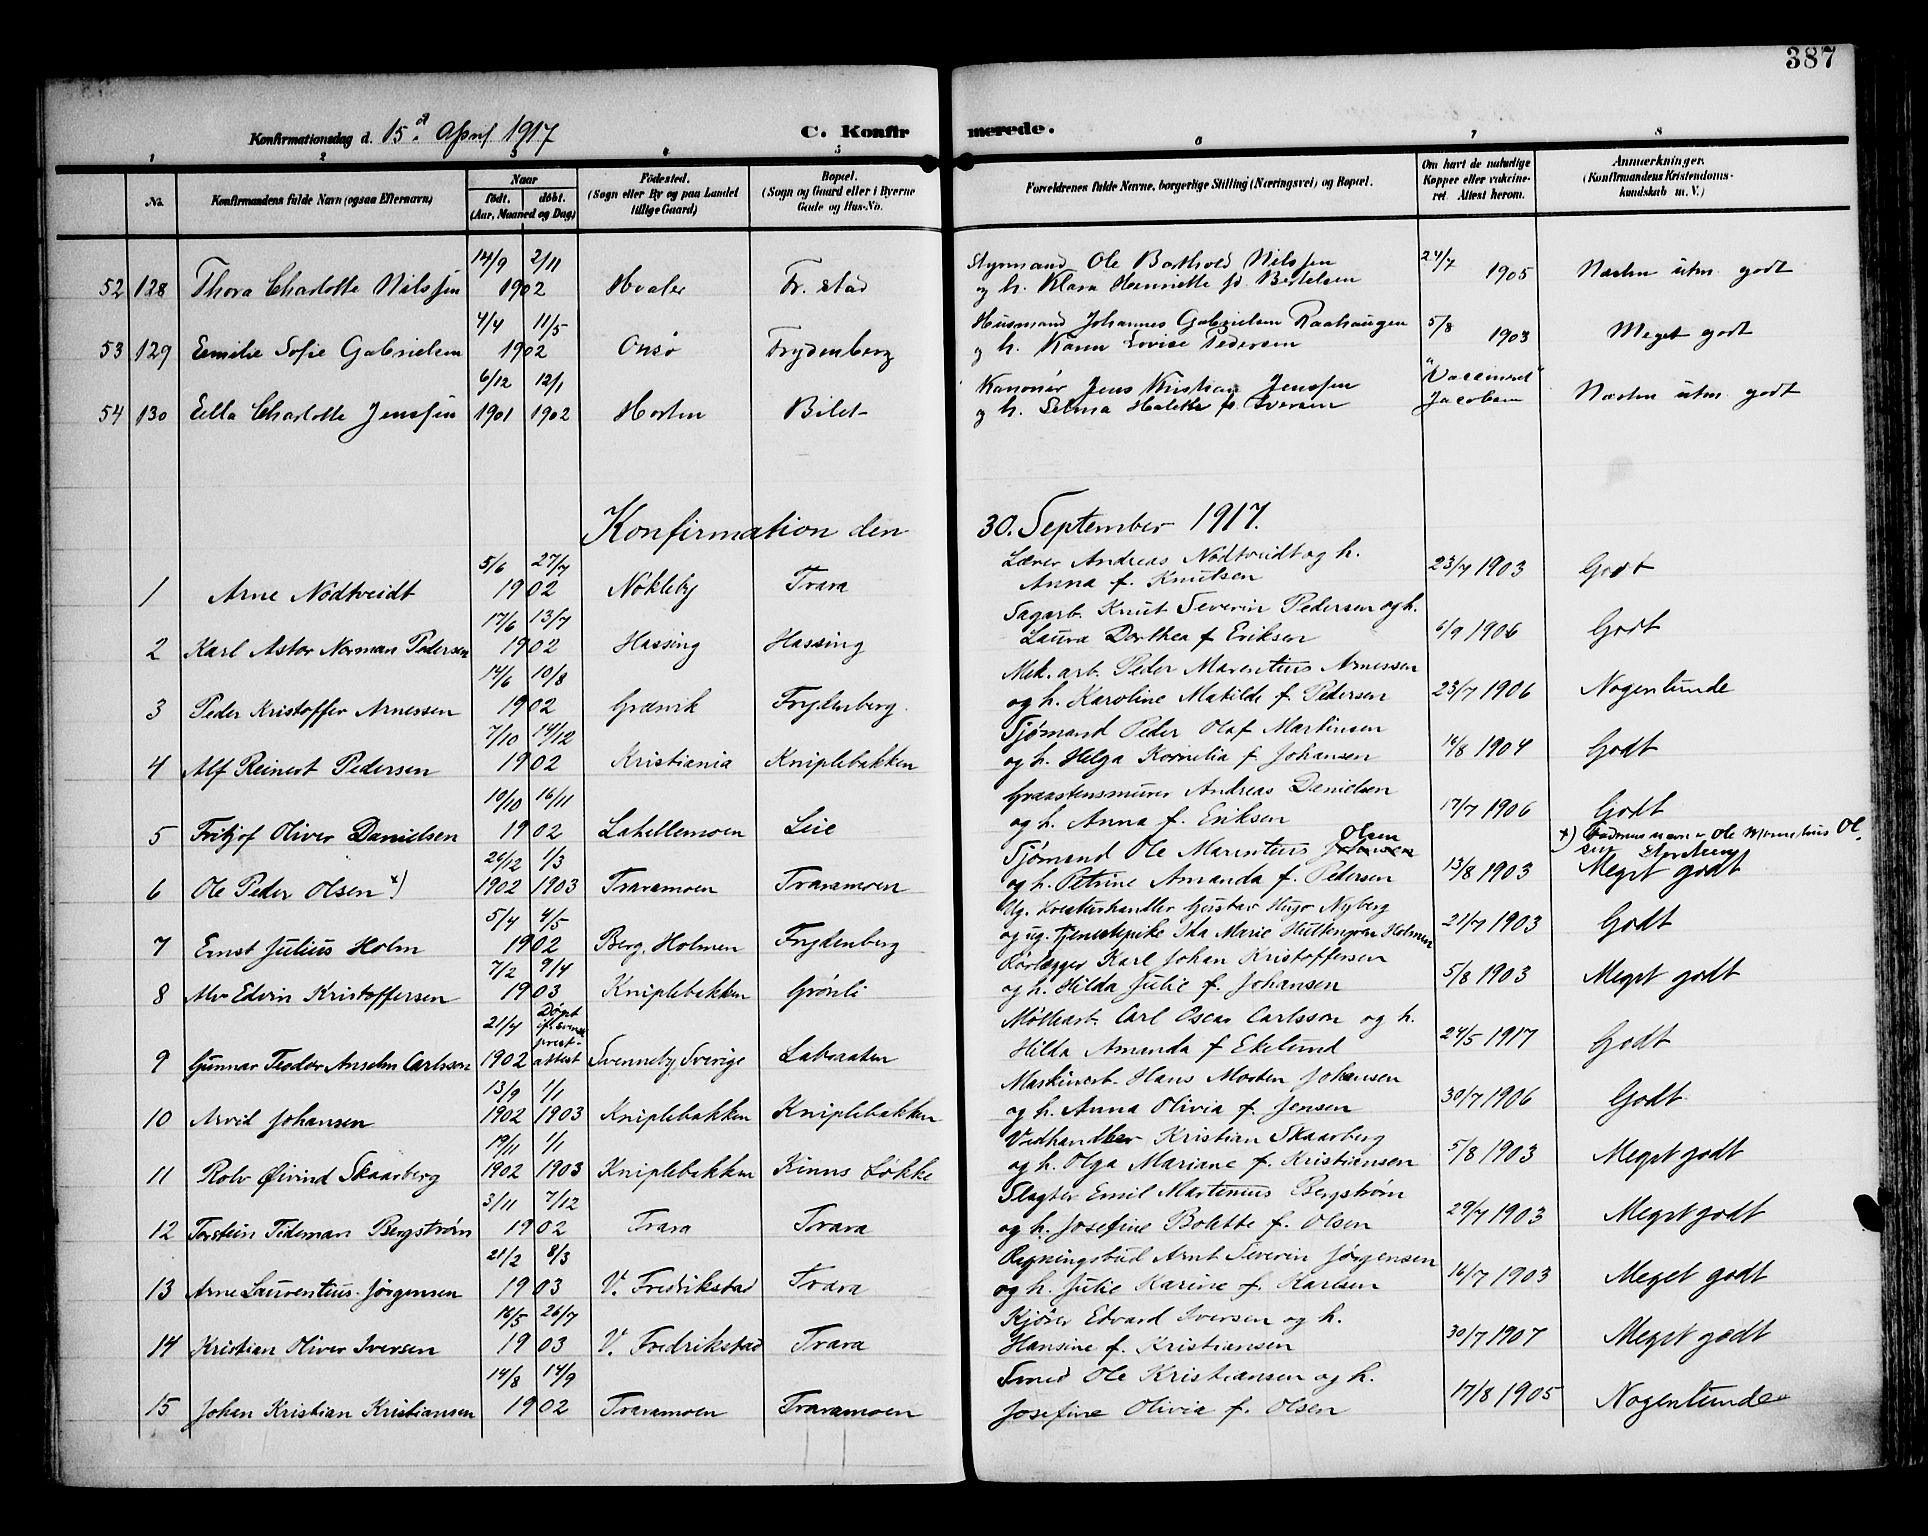 387
Konfirmationsdag d. 15de April 1917
C. Konfirmerede.
1 2 3 4 5 6 7 8
No. Konfirmandens fulde Navn (ogsaa Efternavn) Naar født. døbt. (Aar, Maaned og Dag) Fødested. (Sogn eller By og paa Landet tillige Gaard) Bopæl. (Sogn og Gaard eller i Byerne Gade og Hus-No.
Forældrenes fulde Navne, borgerlige Stilling (Næringsvei) og Bopæl. Om havt de naturlige Kopper eller vaccineret Attest herom. Anmærkninger. (Konfirmandens Kristendomskundskab m. V.)
52 128 Thora Charlotte Nilssen 14/9 2/11 1902 Hvaler Fr. stad
Styrmand Ole Barthold Nilssen
og h. Klara Henriette fd. Bertelsen 24/7 1905 Næsten utm. godt
53 129 Emilie Sofie Gabrielsen 4/4 11/5 1902 Onsø Frydenberg
Husmand Johannes Gabrielsen Raahaugen
og h. Karen Lovise Pedersen 5/8 1903 Meget godt
54 130 Ella Charlotte Jenssen 6/12 1901 12/1 1902 Horten Bilet
Kanonér Jens Kristian Jenssen
og h. Selma f. Iversen "Vaccineret" Jacobsen Næsten utm. godt
Konfirmation den 30. September 1917.
1 Arne Nødtveidt 5/6 27/7 1902 Nøkleby Trara
Lærer Andreas Nødtveidt og h.
Anna f. Knutsen 23/7 1903 Godt
2 Karl Astor Norman Pedersen 17/6 13/7 1902 Hassing Hassing
Sagarb. Knut Severin Pedersen og h.
Laura Dorthea f. Eriksen 6/9 1906 Godt
3 Peder Kristoffer Arnessen 14/6 10/8 1902 Græsvik Frydenberg.
Mek. arb. Peder Marentius Arnessen
og h. Karoline Matilde f. Pedersen 23/7 1906 Nogenlunde
4 Alf Reinert Pedersen 7/10 14/12 1902 Kristiania Kniplebakken
Sjømand Peder Olaf Martinsen
og h. Helga Kornelia f. Johansen 14/8 1904 Godt
5 Fritjof Oliver Danielsen 10/10 16/11 1902 Lahellemoen Lie
Graastensmurer Andreas Danielsen
og h. Anna f. Eriksen 17/7 1906 Godt
6 Ole Peder Olsen x) 26/12 1902 1/3 1903 Traramoen Traramoen
Sjømand Ole Marentius Johansen Olsen
og h. Petrine Amanda f. Pedersen 13/8 1903 Meget godt
x) Ole Marentius Olsen
7 Ernst Julius Holm 5/4 4/5 1902 Berg, Holmen Frydenberg
Ug. Kreaturhandler Gustav Hugo Nyberg
og ug. tjenestepike Ida Marie Huttengran Holmen 21/7 1903 Godt
8 Alv Edvin Kristoffersen 7/2 9/4 1903 Kniplebakken Grønli
Rørlægger Karl Johan Kristoffersen
og h. Hilda Julie f. Johansen 5/8 1903 Meget godt
9 Gunnar Teodor Anselm Carlsson 21/4 1902 Døpt if. svensk prestattest Svenneby, Sverige Laboraten
Møllearb. Carl Oscar Carlsson og h.
Hilda Amanda f. Ekelund 24/5 1917 Godt
10 Arvid Johansen 13/9 1902 1/1 1903 Kniplebakken Kniplebakken
Maskinarb. Hans Morten Johansen
og h. Anna Olivia f. Jensen 30/7 1906 Godt
11 Rolv Øivind Skaarberg 19/11 1902 1/1 1903 Kniplebakken Kinns Løkke
Vedhandler Kristian Skaarberg
og h. Olga Mariane f. Kristiansen 5/8 1903 Meget godt
12 Torstein Tideman Bergstrøm 3/11 7/12 1902 Trara Trara
Slagter Emil Martinius Bergstrøm
og h. Josefine Bolette f. Olsen 29/7 1903 Meget godt
13 Arne Laurentius Jørgensen 21/2 8/3 1903 V. Fredrikstad Trara
Regningsbud Arnt Severin Jørgensen
og h. Julie Karine f. Karlsen 16/7 1903 Meget godt
14 Kristian Oliver Iversen 16/5 26/7 1903 V. Fredrikstad Trara
Kjører Edvard Iversen og h.
Hansine f. Kristiansen 30/7 1907 Meget godt
15 Johan Kristian Kristiansen 14/8 14/9 1902 Traramoen Traramoen
Smed Ole Kristiansen og h.
Josefine Olivia f. Olsen 17/8 1905 Nogenlunde